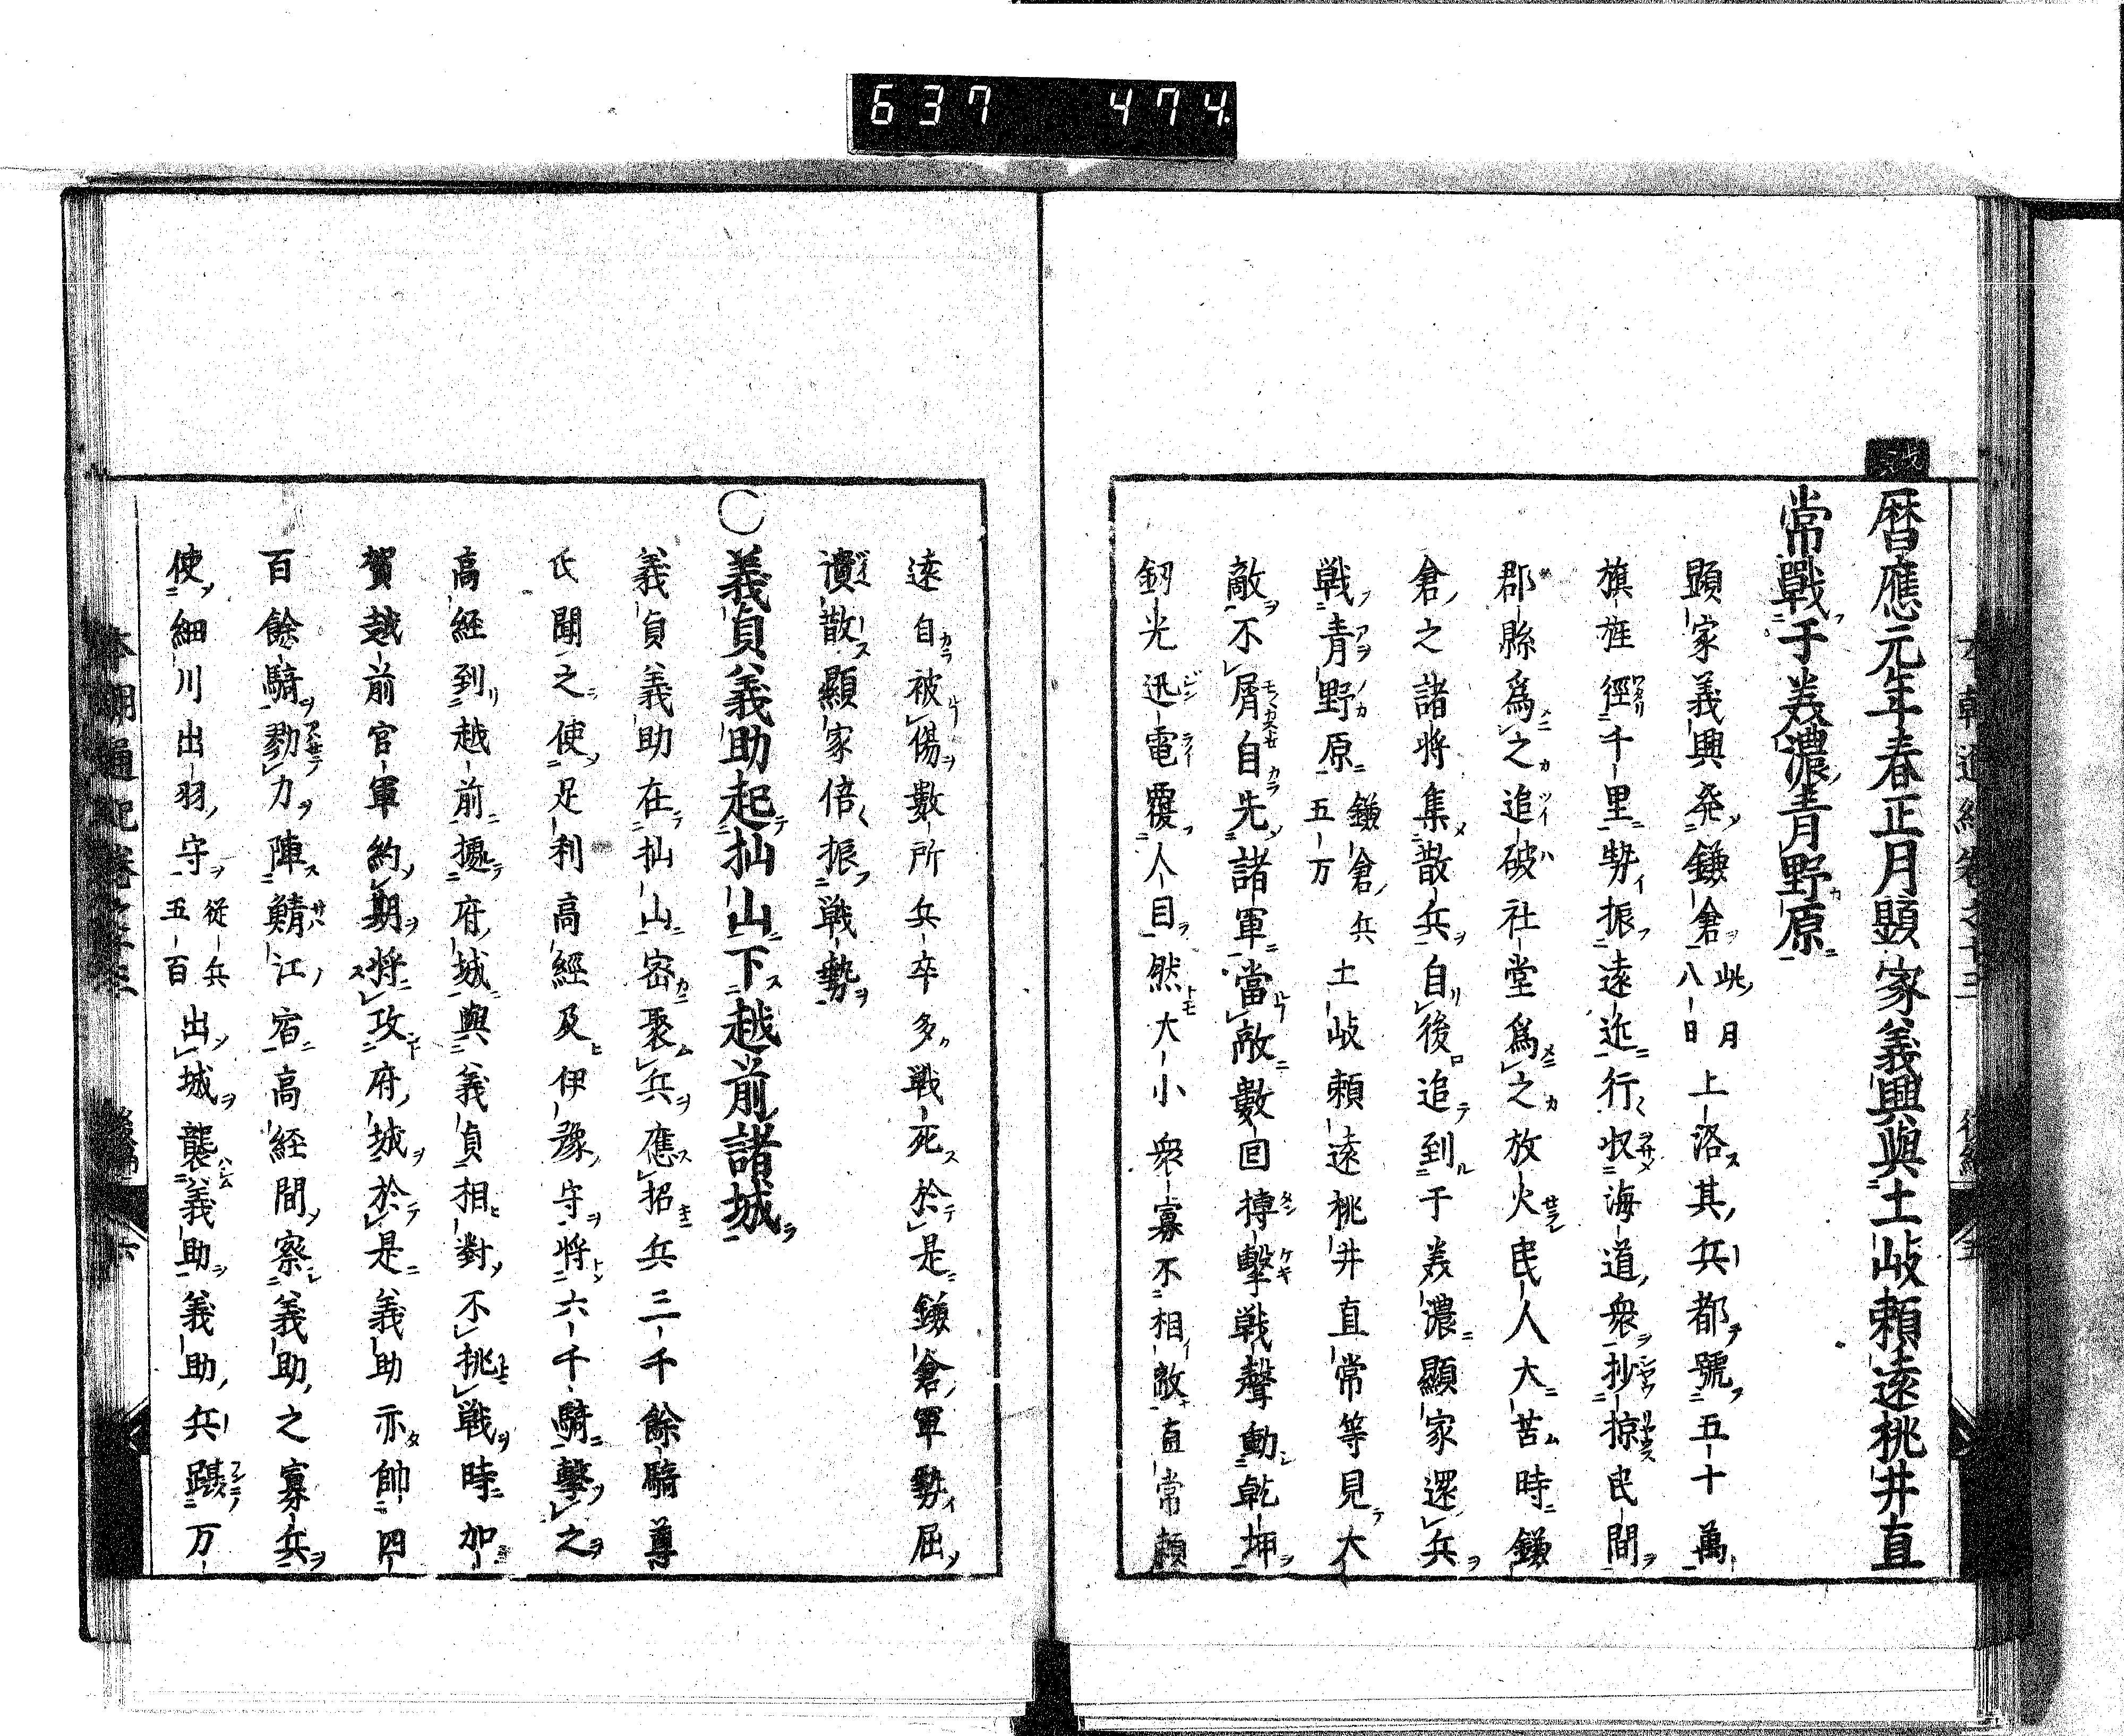 637 474.
暦應元年春正月顕家義興與土岐頼遠桃井直
常戰于美濃青野原
顕家義興発鎌倉此月八日上洛其兵都號五十萬
旗旌徑千里勢振遠近行収海道衆抄掠民間
郡縣爲之追破社堂爲之放火民人大苦時鎌
倉之諸将集散兵自後追到于美濃顯家還兵
戦青野原鎌倉兵五万土岐頼遠桃井直常等見大
敵不屑自先諸軍當敵數回摶撃戦聲動乾坤
釼光迅電覆人目然大小衆寡不相敵直常頼
遠自被傷數所兵卒多戦死於是鎌倉軍勢屈
潰散顯家倍振戦勢
○義貞義助起拙山下越前諸城
義貞義助在拙山密聚兵應招兵三千餘騎尊
氏聞之使足利高經及伊豫守将六千騎擊之
高経到越前據府城與義貞相對不挑戦時加
賀越前官軍約期将攻府城於是義助亦帥四
百餘騎勠力陣鯖江宿高経間察義助之寡兵
使細川出羽守従兵五百出城襲義助義助兵蹑万